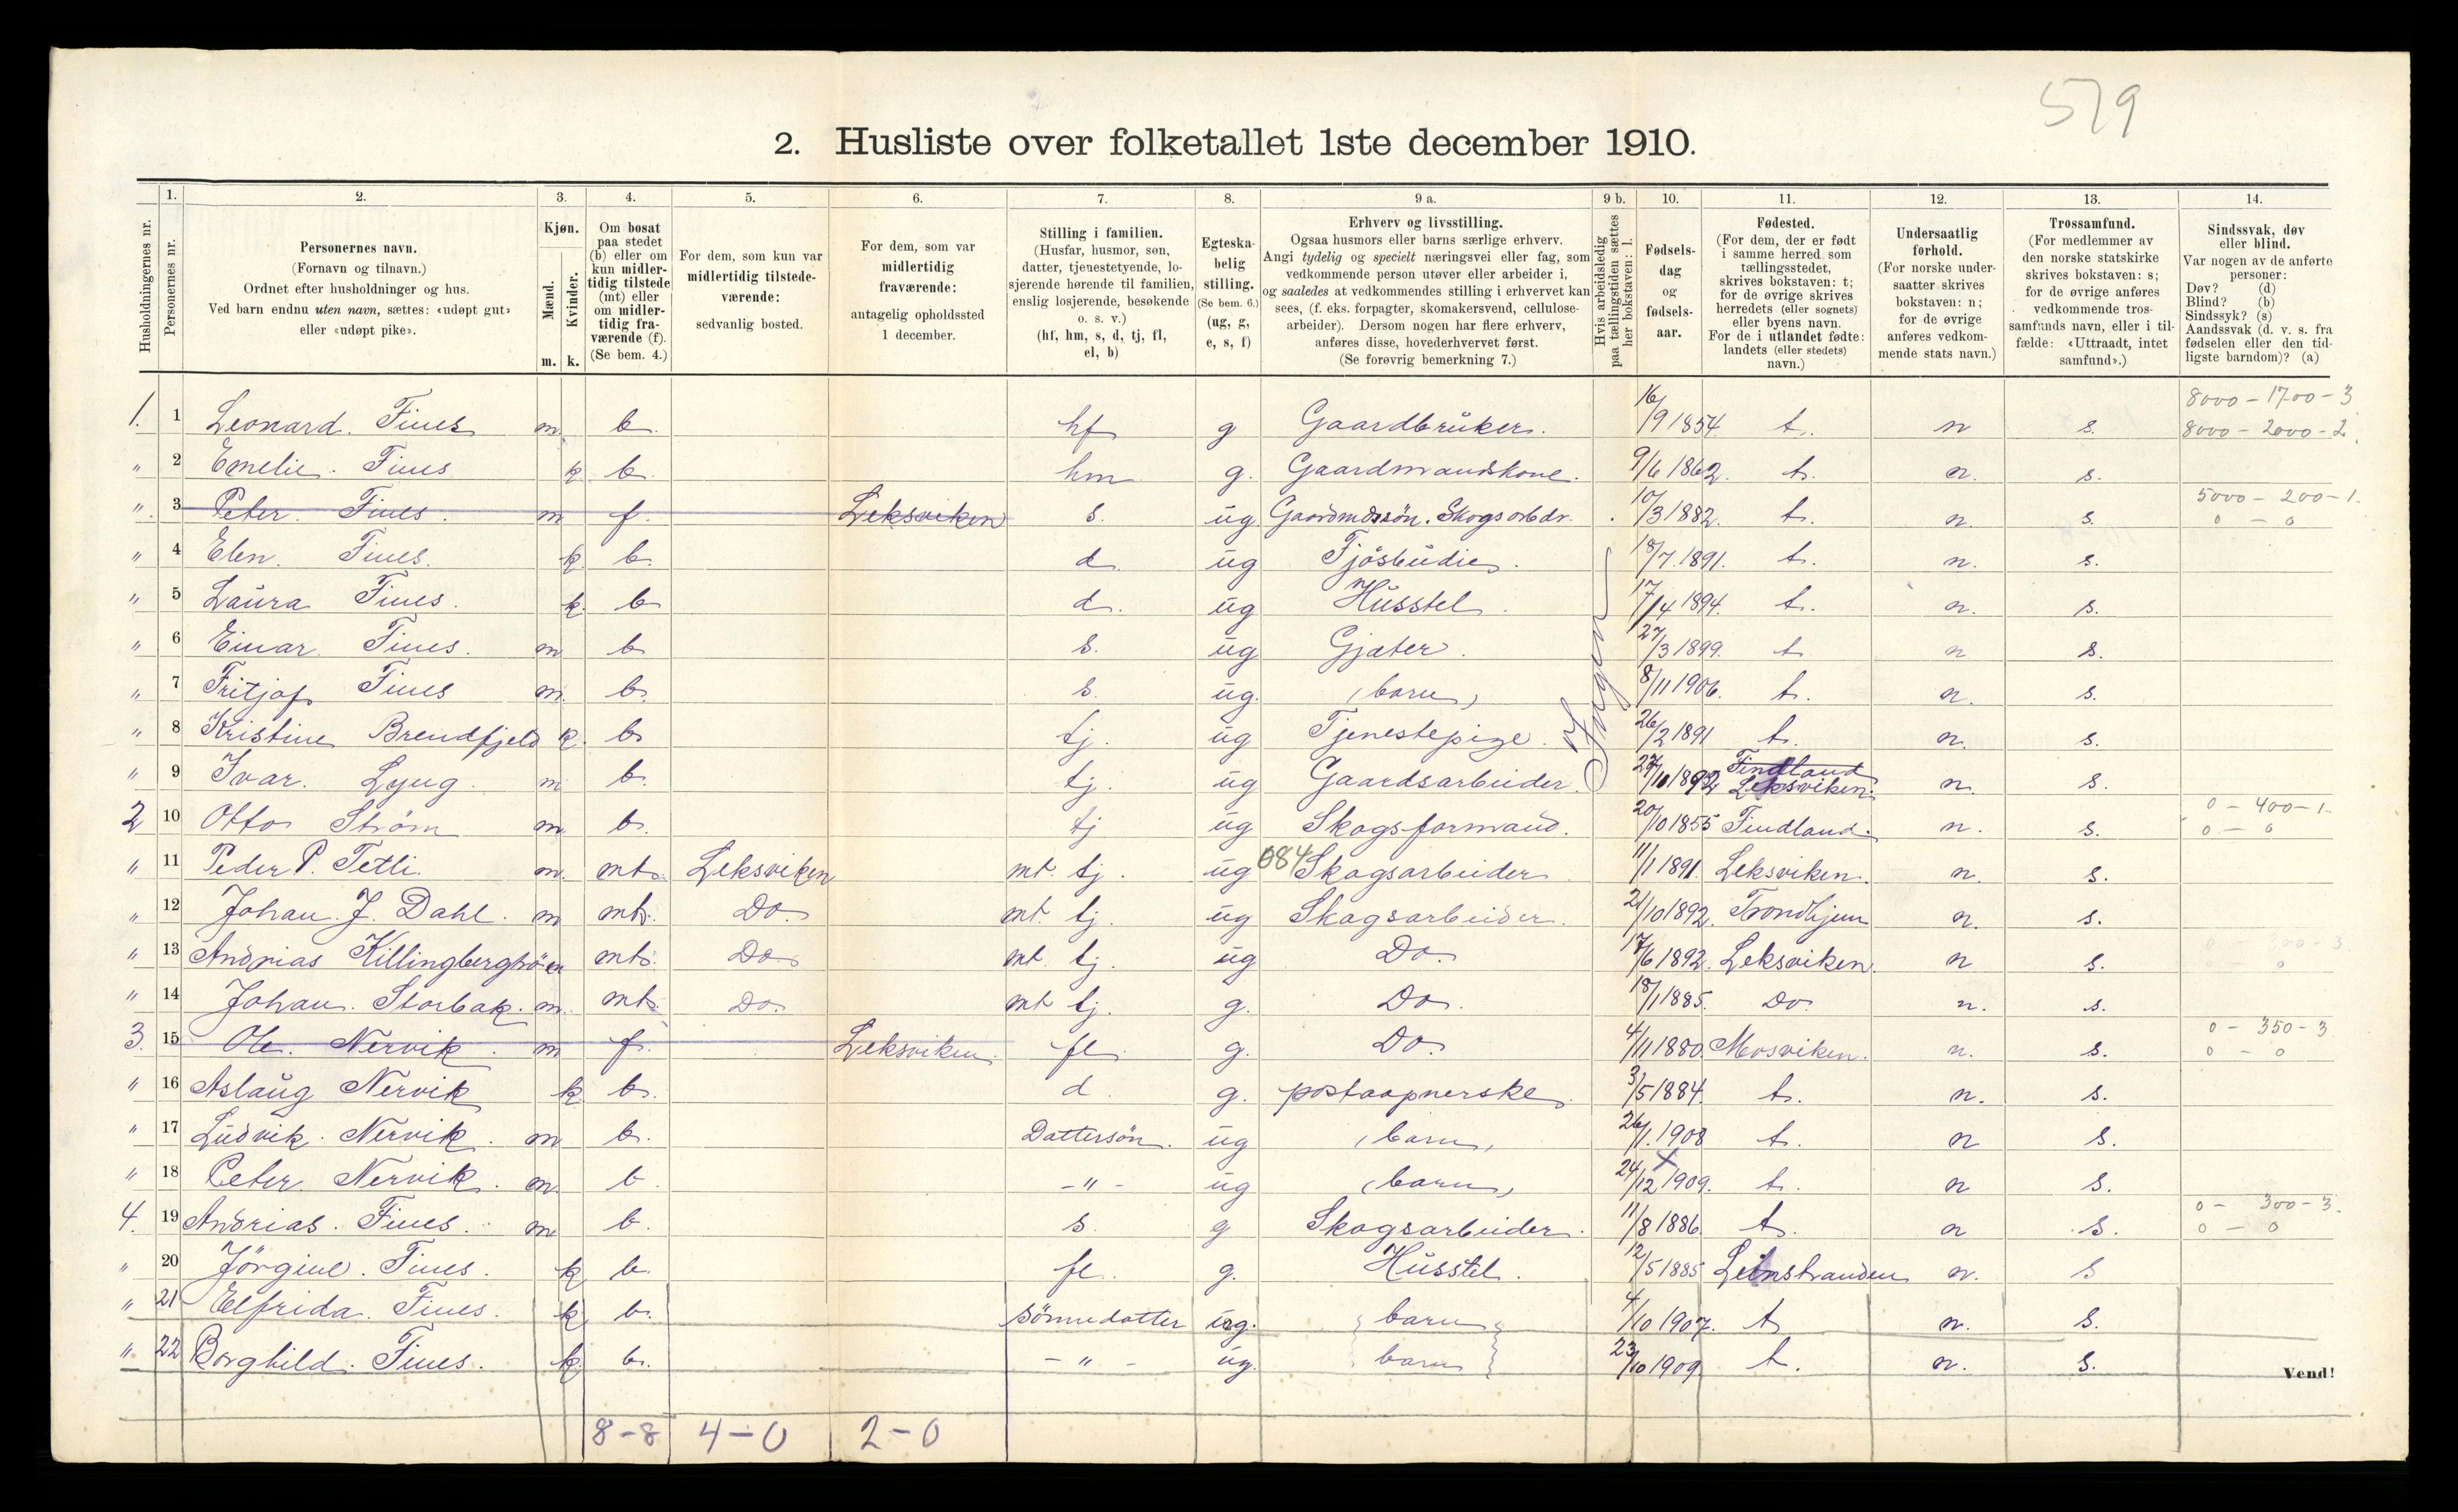 579
2. Husliste over folketallet 1ste december 1910.
Husholdningernes nr.
1. Personernes nr.
2. Personernes navn. (Fornavn og tilnavn.) Ordnet efter husholdninger og hus. Ved barn endnu uten navn, sættes: «udøpt gut» eller «udøpt pike».
3. Kjøn. Mænd. m. Kvinder. k.
4. Om bosat paa stedet (b) eller om kun midlertidig tilstede (mt) eller om midlertidig fraværende (f). (Se bem. 4.)
5. For dem, som kun var midlertidig tilstedeværende: sedvanlig bosted.
6. For dem, som var midlertidig fraværende: antagelig opholdssted 1 december.
7. Stilling i familien. (Husfar, husmor, søn, datter, tjenestetyende, losjerende hørende til familien, enslig losjerende, besøkende o. s. v.) (hf, hm, s, d, tj, fl, el, b)
8. Egteskabelig stilling. (Se bem. 6.) (ug, g, e, s, f)
9 a. Erhverv og livsstilling. Ogsaa husmors eller barns særlige erhverv. Angi tydelig og specielt næringsvei eller fag, som vedkommende person utøver eller arbeider i, og saaledes at vedkommendes stilling i erhvervet kan sees, (f. eks. forpagter, skomakersvend, cellulosearbeider). Dersom nogen har flere erhverv, anføres disse, hovederhvervet først. (Se forøvrig bemerkning 7.)
9 b. Hvis arbeidsledig paa tællingstiden sættes her bokstaven: l.
10. Fødselsdag og fødselsaar.
11. Fødested. (For dem, der er født i samme herred som tællingsstedet, skrives bokstaven: t; for de øvrige skrives herredets (eller sognets) eller byens navn. For de i utlandet fødte: landets (eller stedets) navn.)
12. Undersaatlig forhold. (For norske undersaatter skrives bokstaven: n; for de øvrige anføres vedkommende stats navn.)
13. Trossamfund. (For medlemmer av den norske statskirke skrives bokstaven: s; for de øvrige anføres vedkommende trossamfunds navn, eller i tilfælde: «Uttraadt, intet samfund».)
14. Sindssvak, døv eller blind. Var nogen av de anførte personer: Døv? (d) Blind? (b) Sindssyk? (s) Aandssvak (d. v. s. fra fødselen eller den tidligste barndom)? (a)
8000 - 1700 - 3
1. 1 Leonard. Fines m b. hf g Gaardbruker. 16/9 1854. t. n s. 8000 - 2000 - 2.
" 2 Emelie. Fines k b. hm g. Gaardmandskone. 9/6 1862. t. n. s.
5000 - 200 - 1.
" 3 Peter. Fines. m f. Leksviken s. ug Gaardmdssön. Skogsarbdr. 10/3 1882. t. n. s. 0 - 0
" 4 Elen. Fines. k b. d. ug Fjösbudie. 18/7 1891. t. n. s.
" 5 Laura Fines. k. b d. ug Husstel. 17/4 1894. t. n. s.
" 6 Einar. Fines. m b s. ug Gjæter. 27/3 1899. t n s.
" 7 Fritjof Fines m. b. s. ug. (barn) 8/11 1906. t. n. s.
" 8 Kristine Brendfjeld k. b. tj. ug Tjenestepige. 26/2 1891 t. n. s.
" 9 Ivar. Lyng. m b. tj. ug Gaardsarbeider. 27/10 1892 Findland Leksviken. n. s.
0 - 400 - 1.
2 10 Otto Ström m. b. tj ug Skogsformand. 20/10 1855 Findland. n. s. 0 - 0
" 11 Peder P. Tetli. m. mt. Leksviken mt. tj. ug 084 Skogsarbeider 11/1 1891. Leksviken. n. s.
" 12 Johan. J. Dahl. m mt. Do. mt. tj. ug Skogsarbeider. 21/10 1892. Trondhjem n. s.
" 13 Andrias Killingberghöen mt. Do mt. tj. ug Do. 17/6 1892. Leksviken. n s.
" 14 Johan. Storbak. m. mt. Do. mt tj. g. Do. 18/1 1885. Do. n. s.
0 - 350 - 3
3. 15 Ole. Nervik. m f. Leksviken. fl. g. Do. 4/11 1880. Mosviken. n. s. 0 - 0
" 16 Aslaug Nervik k b. d g. postaapnerske. 3/5 1884. t. n. s.
" 17 Ludvik. Nervik. m b. Dattersön. ug (barn) 26/1. 1908 t. n s.
" 18 Peter Nervik. m. b. - " - ug (barn) 24/12 1909. t. n s.
0 - 300 - 3.
4. 19 Andrias. Fines. m b. s. g Skogsarbeider. 11/8 1886. t. n s. 0 - 0
" 20 Jörgine. Fines. k b. fl. g. Husstel. 12/5 1885 Leinstranden n. s
" 21 Elfrida. Fines. k b. sönnedatter ug. barn 4/10 1907. t n. s.
" 22 Borghild. Fines. k b. - " - ug. barn 23/10 1909. t. n. s.
Vend!
8 - 8 4 - 0 2 - 0